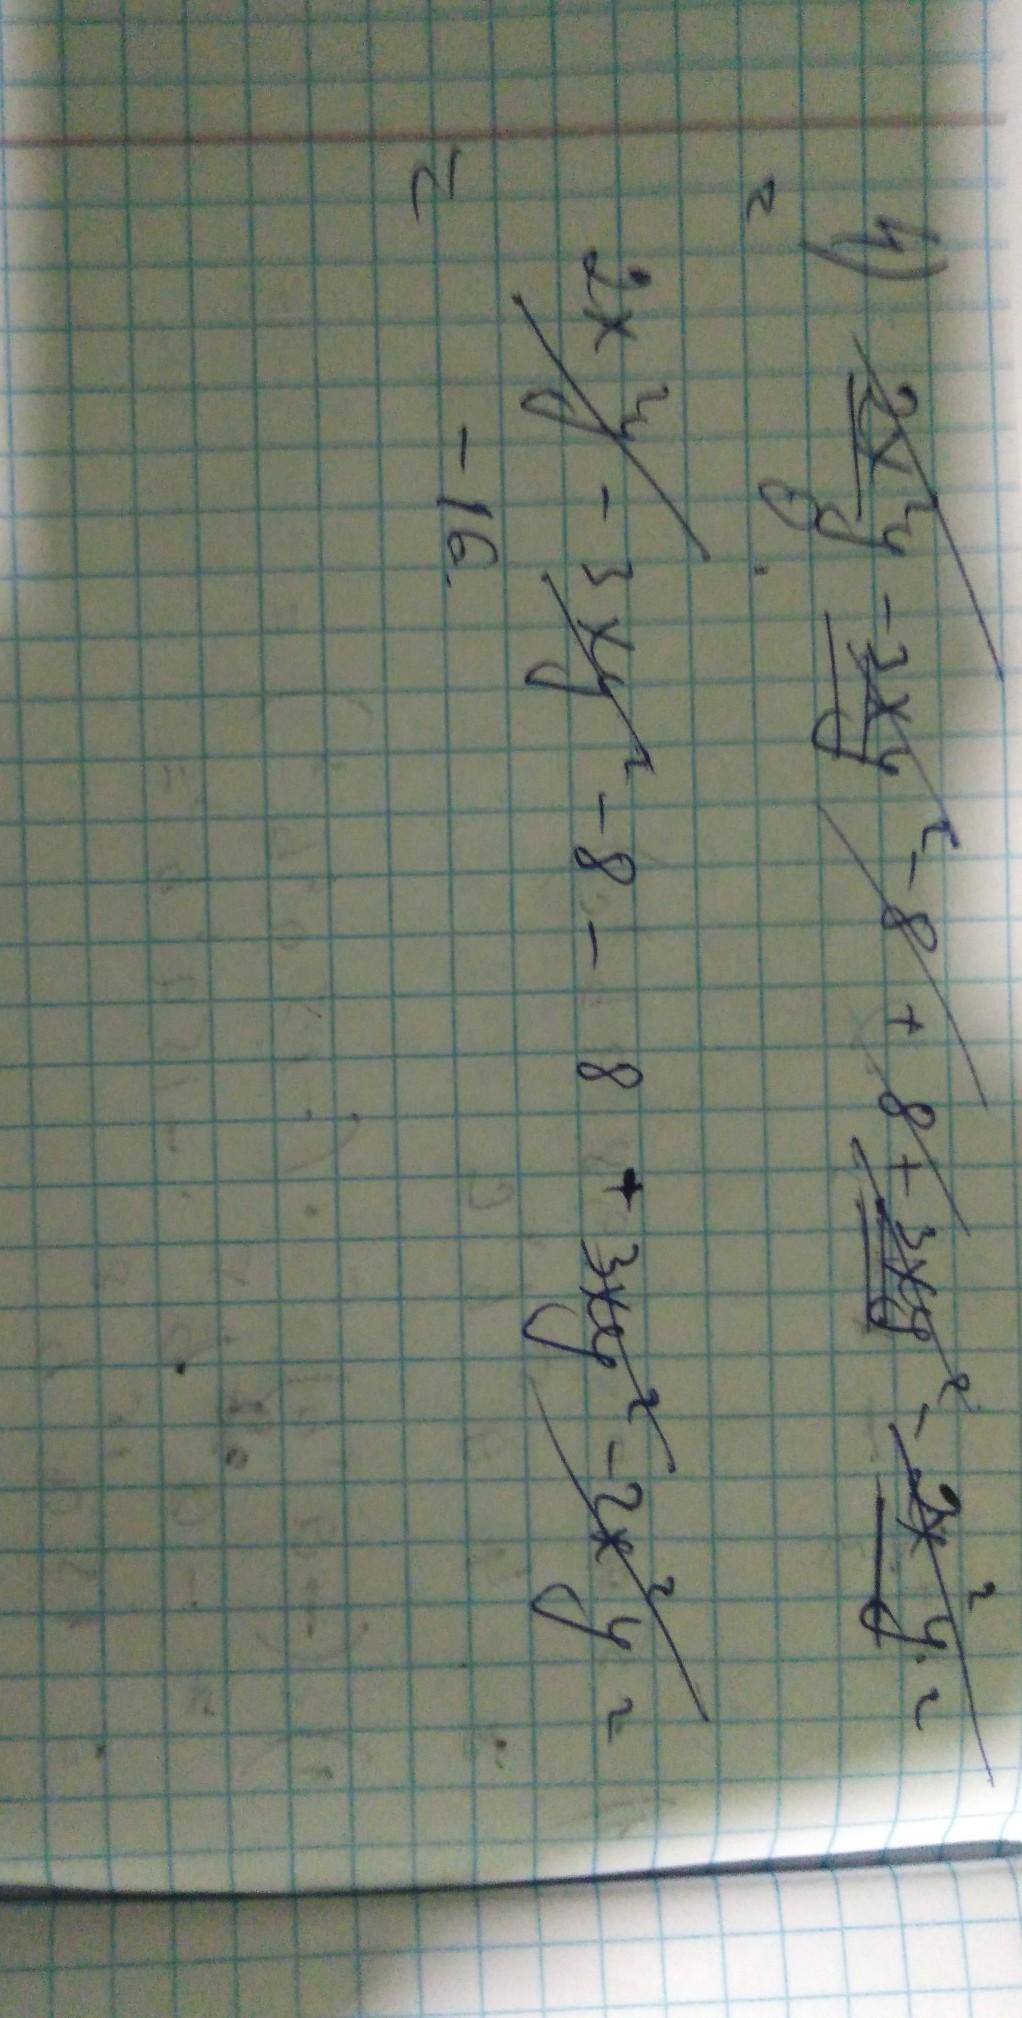 4) 2x²y - 3xy² - 8 + 8 + 3xy² - 2x²y =
= 0.
2x²y - 3xy² - 8 - 8 + 3xy² - 2x²y =
= - 16.